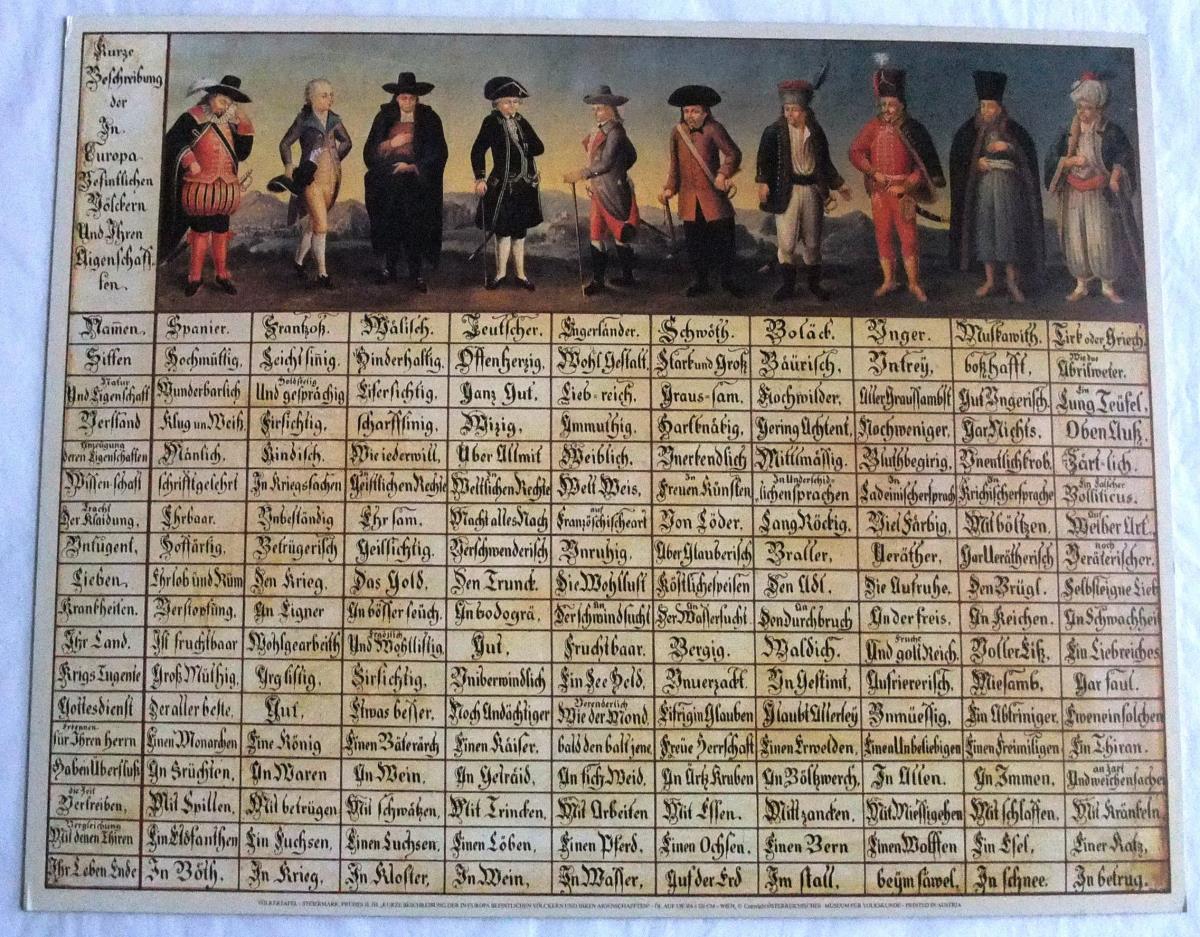 Kurze
Beschreibung
der
In
Europa
Befintlichen
Völckern
Und Ihren
Aigenschaff
ten.
Namen, Spanier. Frantzoß. Wälisch. Teutscher. Engerländer. Schwöth. Boläck. Vnger. Muskawith. Tirk oder Griech.
Sitten Hochmüttig, Leichtsinig, Hinderhaltig, Offenherzig, Wohl Gestalt, Stark und Groß Bäurisch, Vntrey, boßhafft, Wie das Abrilweter.
Natur Und Eigenschaft Wunderbarlich Und Holdseelig gesprächig Eifersichtig, Ganz Gut, Lieb-reich, Graus-sam, Nochwilder, Aller Graussambst Gut Vngerisch, Ein Lung Teüfel,
Verstand Klug un Weiß, Firsichtig, scharffsinig, Wizig, Ammuthig, Hartknäbig, Gering Achtent, Nochweniger, Gar Nichts, Oben Auß,
Anzeügung deren Eigenschaften Mänlich, Kindisch, Wie iederwill, Über Allmit Weiblich, Vnerkendlich Mittlmässig, Bluthbegirig, Vnentlich krob, Zärt-lich.
Wissenschaft schrifftgelehrt In Kriegssachen In Geistlichen Rechte In Weltlichen Rechte Welt Weis, In Freuen Künsten In Underschidlichen sprachen In Ladeinischersprach In Krichischersprache Ein Falscher Bolliticus.
Tracht Der Klaidung, Ehrbaar, Vnbeständig Ehrsam, Macht alles Nach auf Französchischeart Von Löder, Lang Röckig, Viel Färbig, Mit böltzen, Auf Weiber Art.
Untugent, Hoffärtig, Betrügerisch Geillsichtig, Verschwenderisch Vnruhig, Über Glauberisch Braller, Veräther, Gar Verätherisch noch Veräterischer.
Lieben, Ehrlob und Rüm Den Krieg, Das Gold, Den Trunck, Die Wohllust Köstlichespeisen Den Adl, Die Aufruhe, Den Brügl, Selbsteigne Lieb
Krankheiten, Verstopfung, An Eigner An bösser seüch, An bodogrä, An Der schwindsucht An Der Wassersucht, An Den durchbruch An der freis, An Keichen, An Schwachheit
Ihr Land, Ist fruchtbaar Wohlgearbeith Und Ergözlich Wohllistig Gut, Fruchtbaar, Bergig, Waldich, Und Frucht golt Reich, Voller Eiß, Ein Liebreiches
Krigs Tugente Groß Müthig, Arglistig, Firsichtig, Vniberwindlich Ein See Held, Vnuerzackt, Vn Gestimt, Aufriererisch, Miesamb, Gar faul.
Gottesdienst Der aller beste, Gut, Etwas besser, Noch Andächtiger Verenderlich Wie der Mond, Eifrig in Glauben Glaubt Allerley Vnmüessig, Ein Abtriniger, Eweneinsolchen
Erkennen für Ihren Herrn Einen Monarchen Eine König Einen Bäterärch Einen Kaiser, bald den balt jene, Freüe Herrschaft Einen Erwelden, Einen Unbeliebigen Einen Freimiligen Ein Thiran.
Haben Überfluß An Früchten, An Waren An Wein, An Getraid, An fich Weid, An Ärtz Kruben An Böltzwerch, In Allen, An Immen, an Zart Und weichen sachen
die Zeit Vertreiben, Mit Spillen, Mit betrügen Mit schwätzen, Mit Trincken, Mit Arbeiten Mit Essen, Mitt zancken, Mit Miessigehen Mit schlaffen, Mit Kränkeln
Vergleichung Mit denen Thiren Ein Elofanthen Ein Fuchsen, Einen Luchsen, Einen Löben, Einen Pferd, Einen Ochsen, Einen Bern Einen Wolffen Ein Esel, Einer Katz,
Ihr Leben Ende In Böth, In Krieg, In Kloster, In Wein, In Wasser, Auf der Erd Im stall, beym säwel, In schnee, In betrug.
VÖLKERTAFEL – STEIERMARK, FRÜHES 18. JH. „KURZE BESCHREIBUNG DER IN EUROPA BEFINTLICHEN VÖLCKERN UND IHREN AIGENSCHAFFTEN"